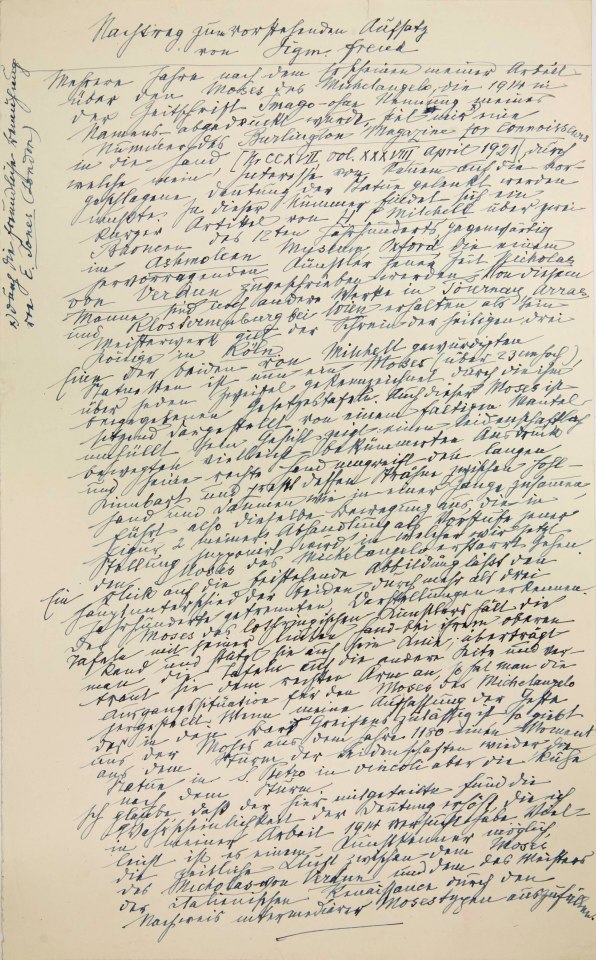 Nachtrag zum vorstehenden Aufsatz
von Sigm. Freud
Mehrere Jahre nach dem Erscheinen meiner Arbeit
über den Moses des Michelangelo, die 1914 in
der Zeitschrift Imago – ohne Nennung meines
Namens – abgedruckt wurde, fiel mir eine
Nummer des Burlington Magazine for Connoisseurs
in die Hand (Nr CCXVII, vol. XXXVIII April 1921), durch
welche mein Interesse von Neuem auf die vor-
geschlagene Deutung der Statue gelenkt werden
mußte. In dieser Nummer findet sich ein
kurzer Artikel von H P Mitchell über zwei
Bronzen des 12ten Jahrhunderts, gegenwärtig
im Ashmolean Museum, Oxford, die einem
hervorragenden Künstler jener Zeit, Nicholas
von Verdun zugeschrieben werden. Von diesem
Manne sind noch andere Werke in Tournay, Arras
und Klosterneuburg bei Wien erhalten als sein
Meisterwerk gilt der Schrein der heiligen drei
Könige in Köln.
Eine der beiden von Mitchell gewürdigten
Statuetten ist nun ein Moses (über 23 cm hoch),
über jeden Zweifel gekennzeichnet durch die ihm
beigegebenen Gesetzestafeln. Auch dieser Moses ist
sitzend dargestellt von einem faltigen Mantel
umhüllt sein Gesicht zeigt einen leidenschaftlich
bewegten, vielleicht bekümmerten Ausdruck
und seine rechte Hand umgreift den langen
Kinnbart und preßt dessen Strähne zwischen Hohl-
hand und Daumen wie in einer Zange zusammen,
führt also dieselbe Bewegung aus, die in
Figur 2 meiner Abhandlung als Vorstufe jener
Stellung supponirt wird, in welcher wir jetzt
den Moses des Michelangelo erstarrt sehen.
Ein Blick auf die beistehende Abbildung läßt den
Hauptunterschied der beiden, durch mehr als drei
Jahrhunderte getrennten, Darstellungen erkennen.
Der Moses des lothringischen Künstlers hält die
Tafeln mit seiner linken Hand bei ihrem oberen
Rand und stützt sie auf sein Knie; überträgt
man die Tafeln auf die andere Seite und ver-
traut sie dem rechten Arm an, so hat man die
Ausgangssituation für den Moses des Michelangelo
hergestellt. Wenn meine Auffassung der Geste
des in den Bart Greifens zulässig ist so giebt
uns der Moses aus dem Jahre 1180 einen Moment
aus dem Sturm der Leidenschaften wieder, die
Statue in S. Pietro in vincoli aber die Ruhe
nach dem Sturm.
Ich glaube, daß der hier mitgeteilte Fund die
Wahrscheinlichkeit der Deutung erhöht, die ich
in meiner Arbeit 1914 versucht habe. Viel-
leicht ist es einem Kunstkenner möglich
die zeitliche Kluft zwischen dem Moses
des Nicholas von Verdun und dem des Meisters
der italienischen Renaissance durch den
Nachweis intermediärer Mosestypen auszufüllen.
durch die freundliche Bemühung
von E. Jones (London)